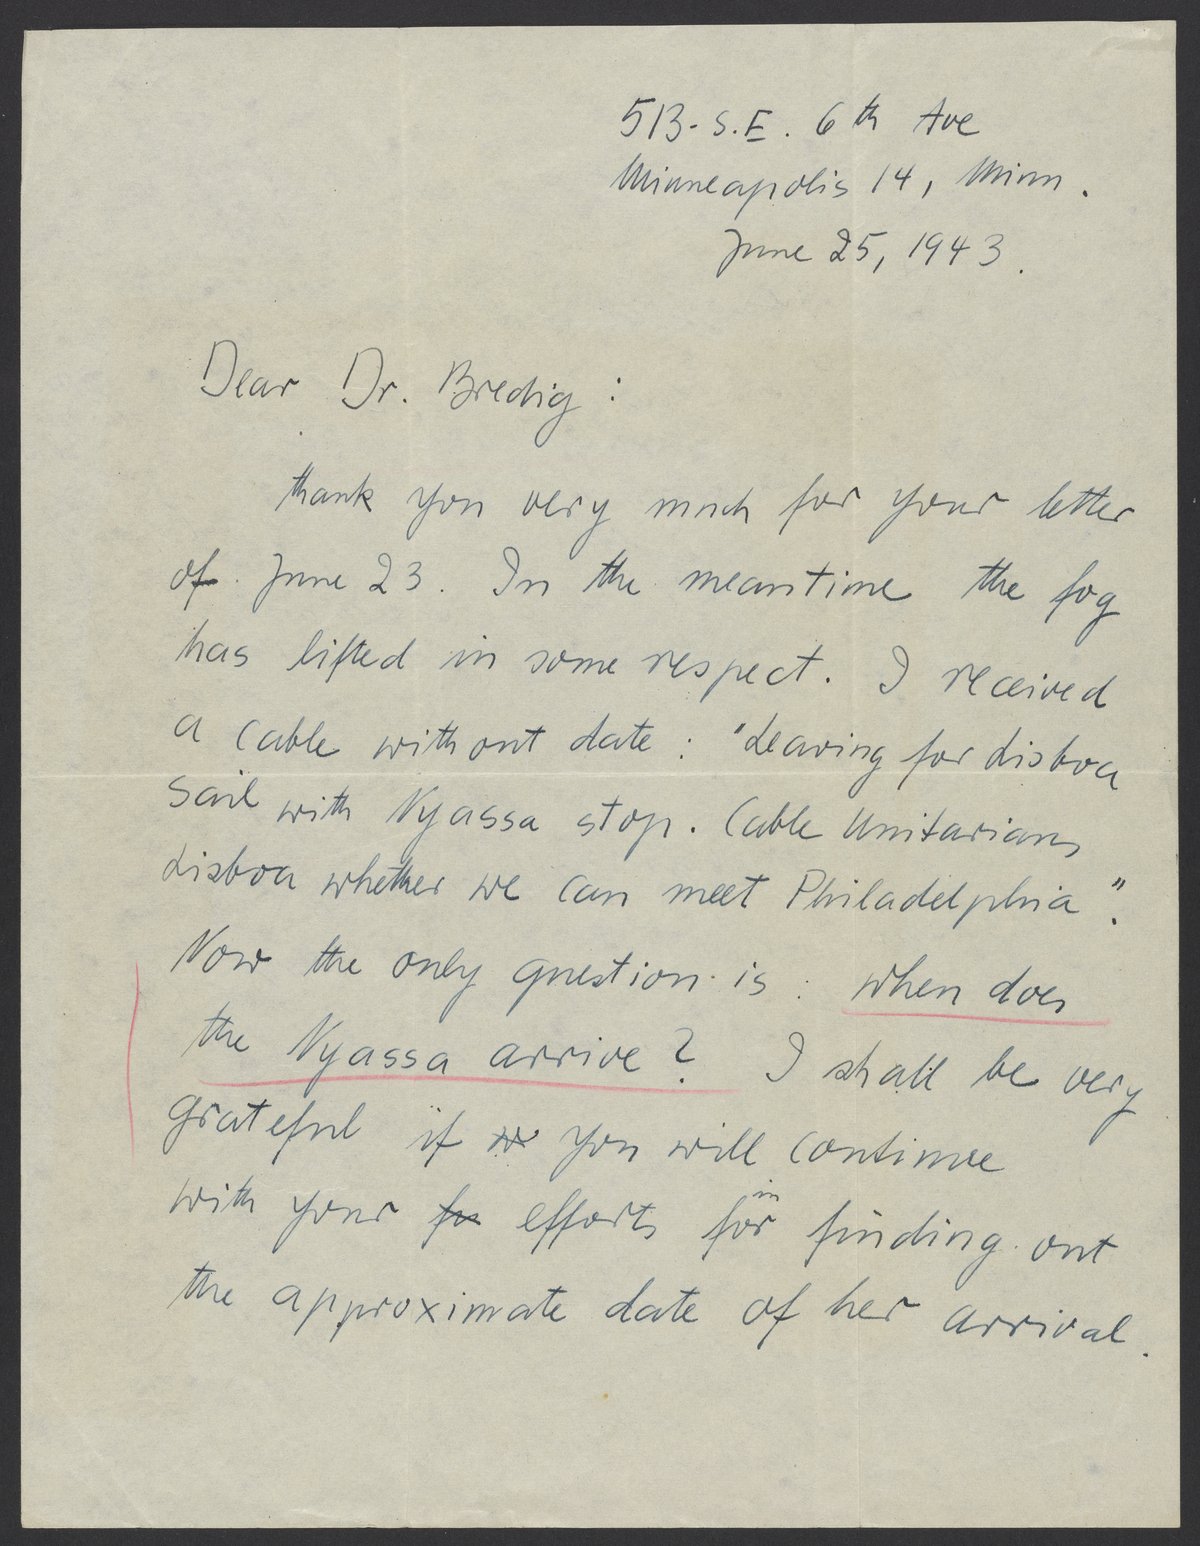 513- S.E. 6th Ave
Minneapolis 14, Minn.
June 25, 1943.
Dear Dr. Bredig:
thank you very much for your letter
of June 23. In the meantime the fog
has lifted in some respect. I received
a cable without date: "Leaving for Lisboa
Sail with Nyassa stop. Cable Unitarians
Lisboa whether we can meet Philadelphia".
Now the only question is: when does
the Nyassa arrive? I shall be very
grateful if you will continue
with your efforts for in finding out
the approximate date of her arrival.